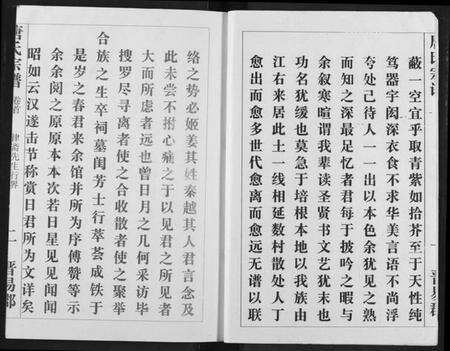 蔽一空宜乎取青紫如拾芥至于天性纯
笃器宇闳深衣食不求华美言语不尚浮
夸处己待人一一出以本色余犹见之熟
而知之深最足忆者君每于披吟之暇与
余叙寒暄谓我辈读圣贤书文艺犹末也
功名犹缓也莫急于培根本地以我族由
江右来居此土一线相延数村散处人丁
愈出而愈多世代愈离而愈远无谱以联
络之势必姬其姓秦越其人君言念及
此未尝不拊心痛之于以见君之所见者
大而所虑者远也曾日月之几何采访毕
搜罗尽寻离者使之合收散者使之聚举
合族之生卒祠墓闺芳士行萃荟成铁于
是岁之春君来余馆并所为序傅赞等示
余余阅之原原本本次若日星见见闻闻
昭如云汉遂击节称赏曰君所为文详矣
唐氏宗谱
卷首
律斋先生行略
二
晋易郡